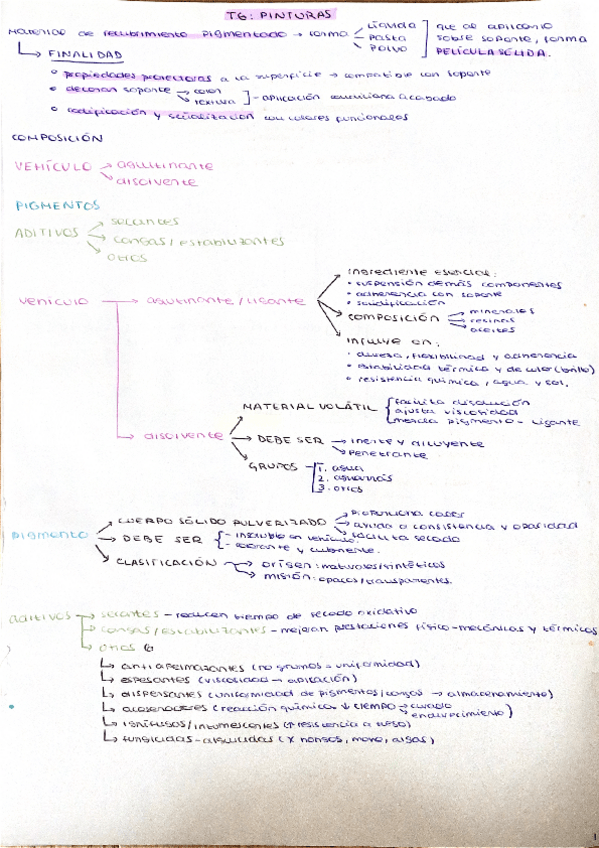 T6: PINTURAS
Material de recubrimiento pigmentado → forma líquida
pasta
polvo
que al aplicarlo
sobre soporte, forma
PELÍCULA SÓLIDA.
↳ FINALIDAD
• propiedades protectoras a la superficie → compatible con soporte
• decoran soporte → color
textura ] - aplicación acabado
• codificación y señalización con colores funcionales
COMPOSICIÓN
VEHÍCULO → aglutinante
disolvente
PIGMENTOS
ADITIVOS → secantes
cargas/estabilizantes
otros
vehículo → aglutinante/ligante
Ingrediente esencial:
• suspensión demás componentes
• adherencia con soporte
• solidificación
COMPOSICIÓN → minerales
resinas
aceites
Influye en:
• dureza, flexibilidad y adherencia
• estabilidad térmica y de color (brillo)
• resistencia química, agua y sol.
disolvente
MATERIAL VOLÁTIL { facilita disolución
ajusta viscosidad
mezcla pigmento - ligante
DEBE SER → inerte y diluyente
penetrante
GRUPOS 1. agua
2. aguarrás
3. otros
PIGMENTO
CUERPO SÓLIDO PULVERIZADO → proporciona color
ayuda a consistencia y opacidad
facilita secado
DEBE SER { - insoluble en vehículo.
- colorante y cubriente.
CLASIFICACIÓN → origen: naturales/sintéticos
misión: opacos/transparentes.
aditivos → secantes - reducen tiempo de secado oxidativo
cargas/estabilizantes - mejoran prestaciones físico-mecánicas y térmicas
otros
↳ antiapelmazantes (no grumos = uniformidad)
↳ espesantes (viscosidad → aplicación)
↳ dispersantes (uniformidad de pigmentos/cargas → almacenamiento)
↳ aceleradores (reacción química ↓ tiempo → curado
endurecimiento)
↳ ignífugos/intumescentes (↑ resistencia a fuego)
↳ fungicidas-alguicidas (X hongos, moho, algas)
1